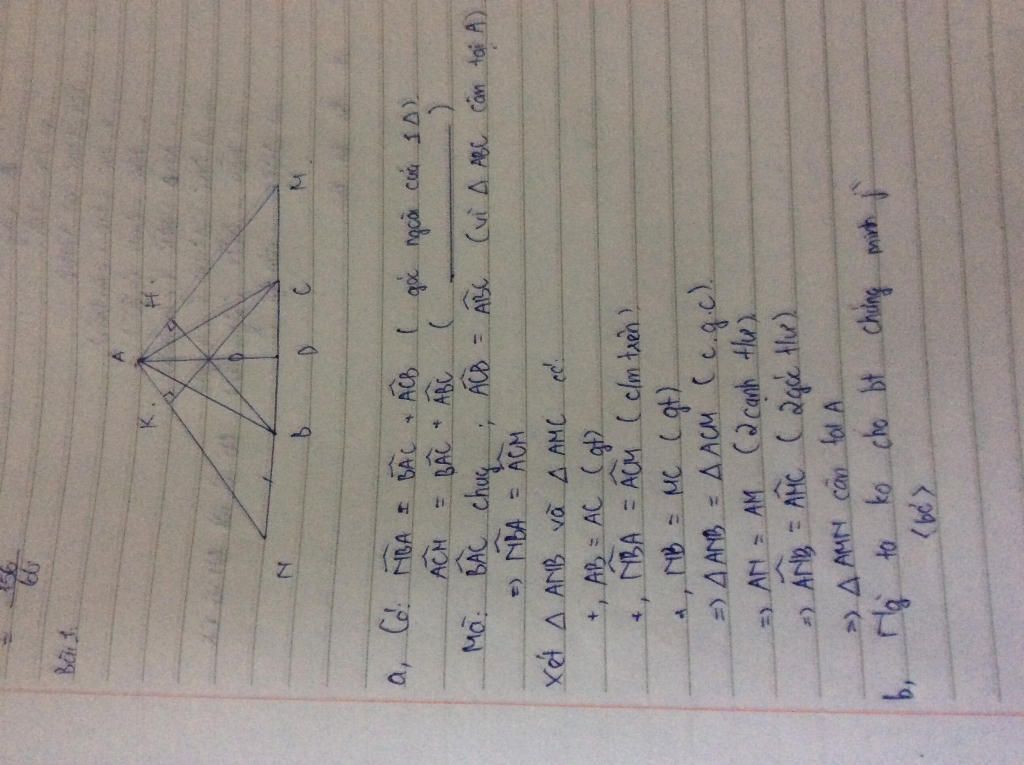 = 156
66
Bài 1.
A
K.
H.
O
N
B
D
C
M.
a, Có: NBA = BAC + ACB ( góc ngoài của 1Δ)
ACM = BAC + ABC ( ——— )
Mà: BAC chug ; ACB = ABC (vì Δ ABC cân tại A)
=> NBA = ACM
Xét Δ ANB và Δ AMC có:
+, AB = AC (gt)
+, NBA = ACM (c/m trên)
+, NB = MC (gt)
=> Δ ANB = Δ ACM (c.g.c)
=> AN = AM (2 cạnh t/ư)
=> ANB = AMC (2 góc t/ư)
=> Δ AMN cân tại A
b, ng` ta ko cho bt chứng minh j`